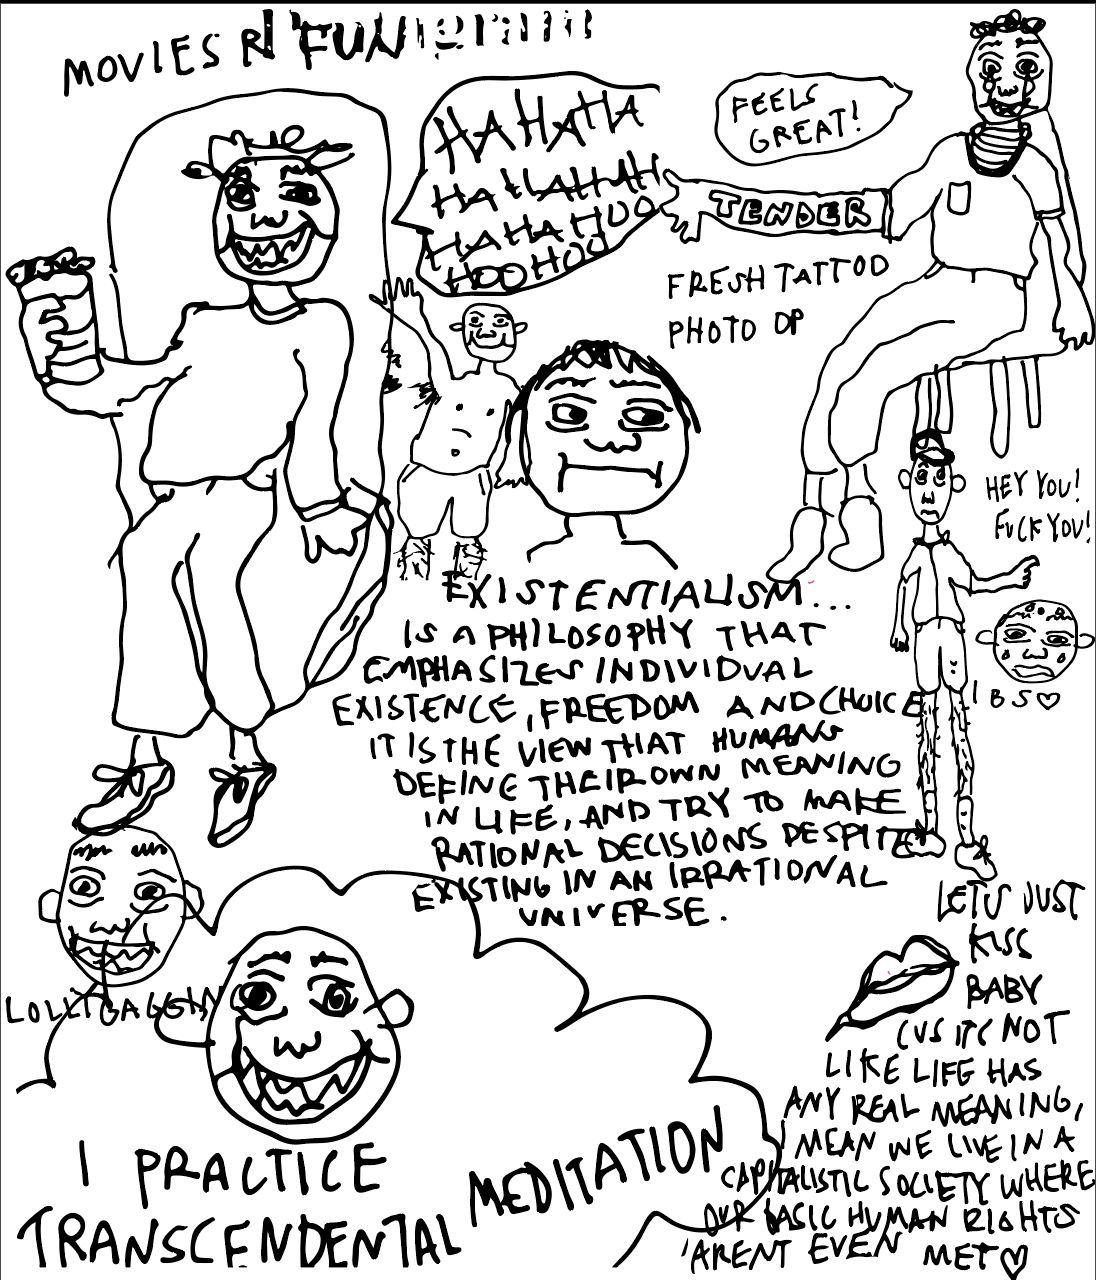 MOVIES R FUN!!!!!!!!!
HA HAHA
HA HAHAH
HAHAHOO
HOOHOO
FEELS
GREAT!
TENDER
FRESH TATTOO
PHOTO OP
HEY YOU!
FUCK YOU!
IBS♡
EXISTENTIALISM...
IS A PHILOSOPHY THAT
EMPHASIZES INDIVIDUAL
EXISTENCE, FREEDOM AND CHOICE
IT IS THE VIEW THAT HUMANS
DEFINE THEIR OWN MEANING
IN LIFE, AND TRY TO MAKE
RATIONAL DECISIONS DESPITE
EXISTING IN AN IRRATIONAL
UNIVERSE.
LOLLYGAGGIN
I PRACTICE
TRANSCENDENTAL MEDITATION
LETS JUST
KISS
BABY
CUS ITS NOT
LIKE LIFE HAS
ANY REAL MEANING,
MEAN WE LIVE IN A
CAPITALISTIC SOCIETY WHERE
OUR BASIC HUMAN RIGHTS
'ARENT EVEN MET♡